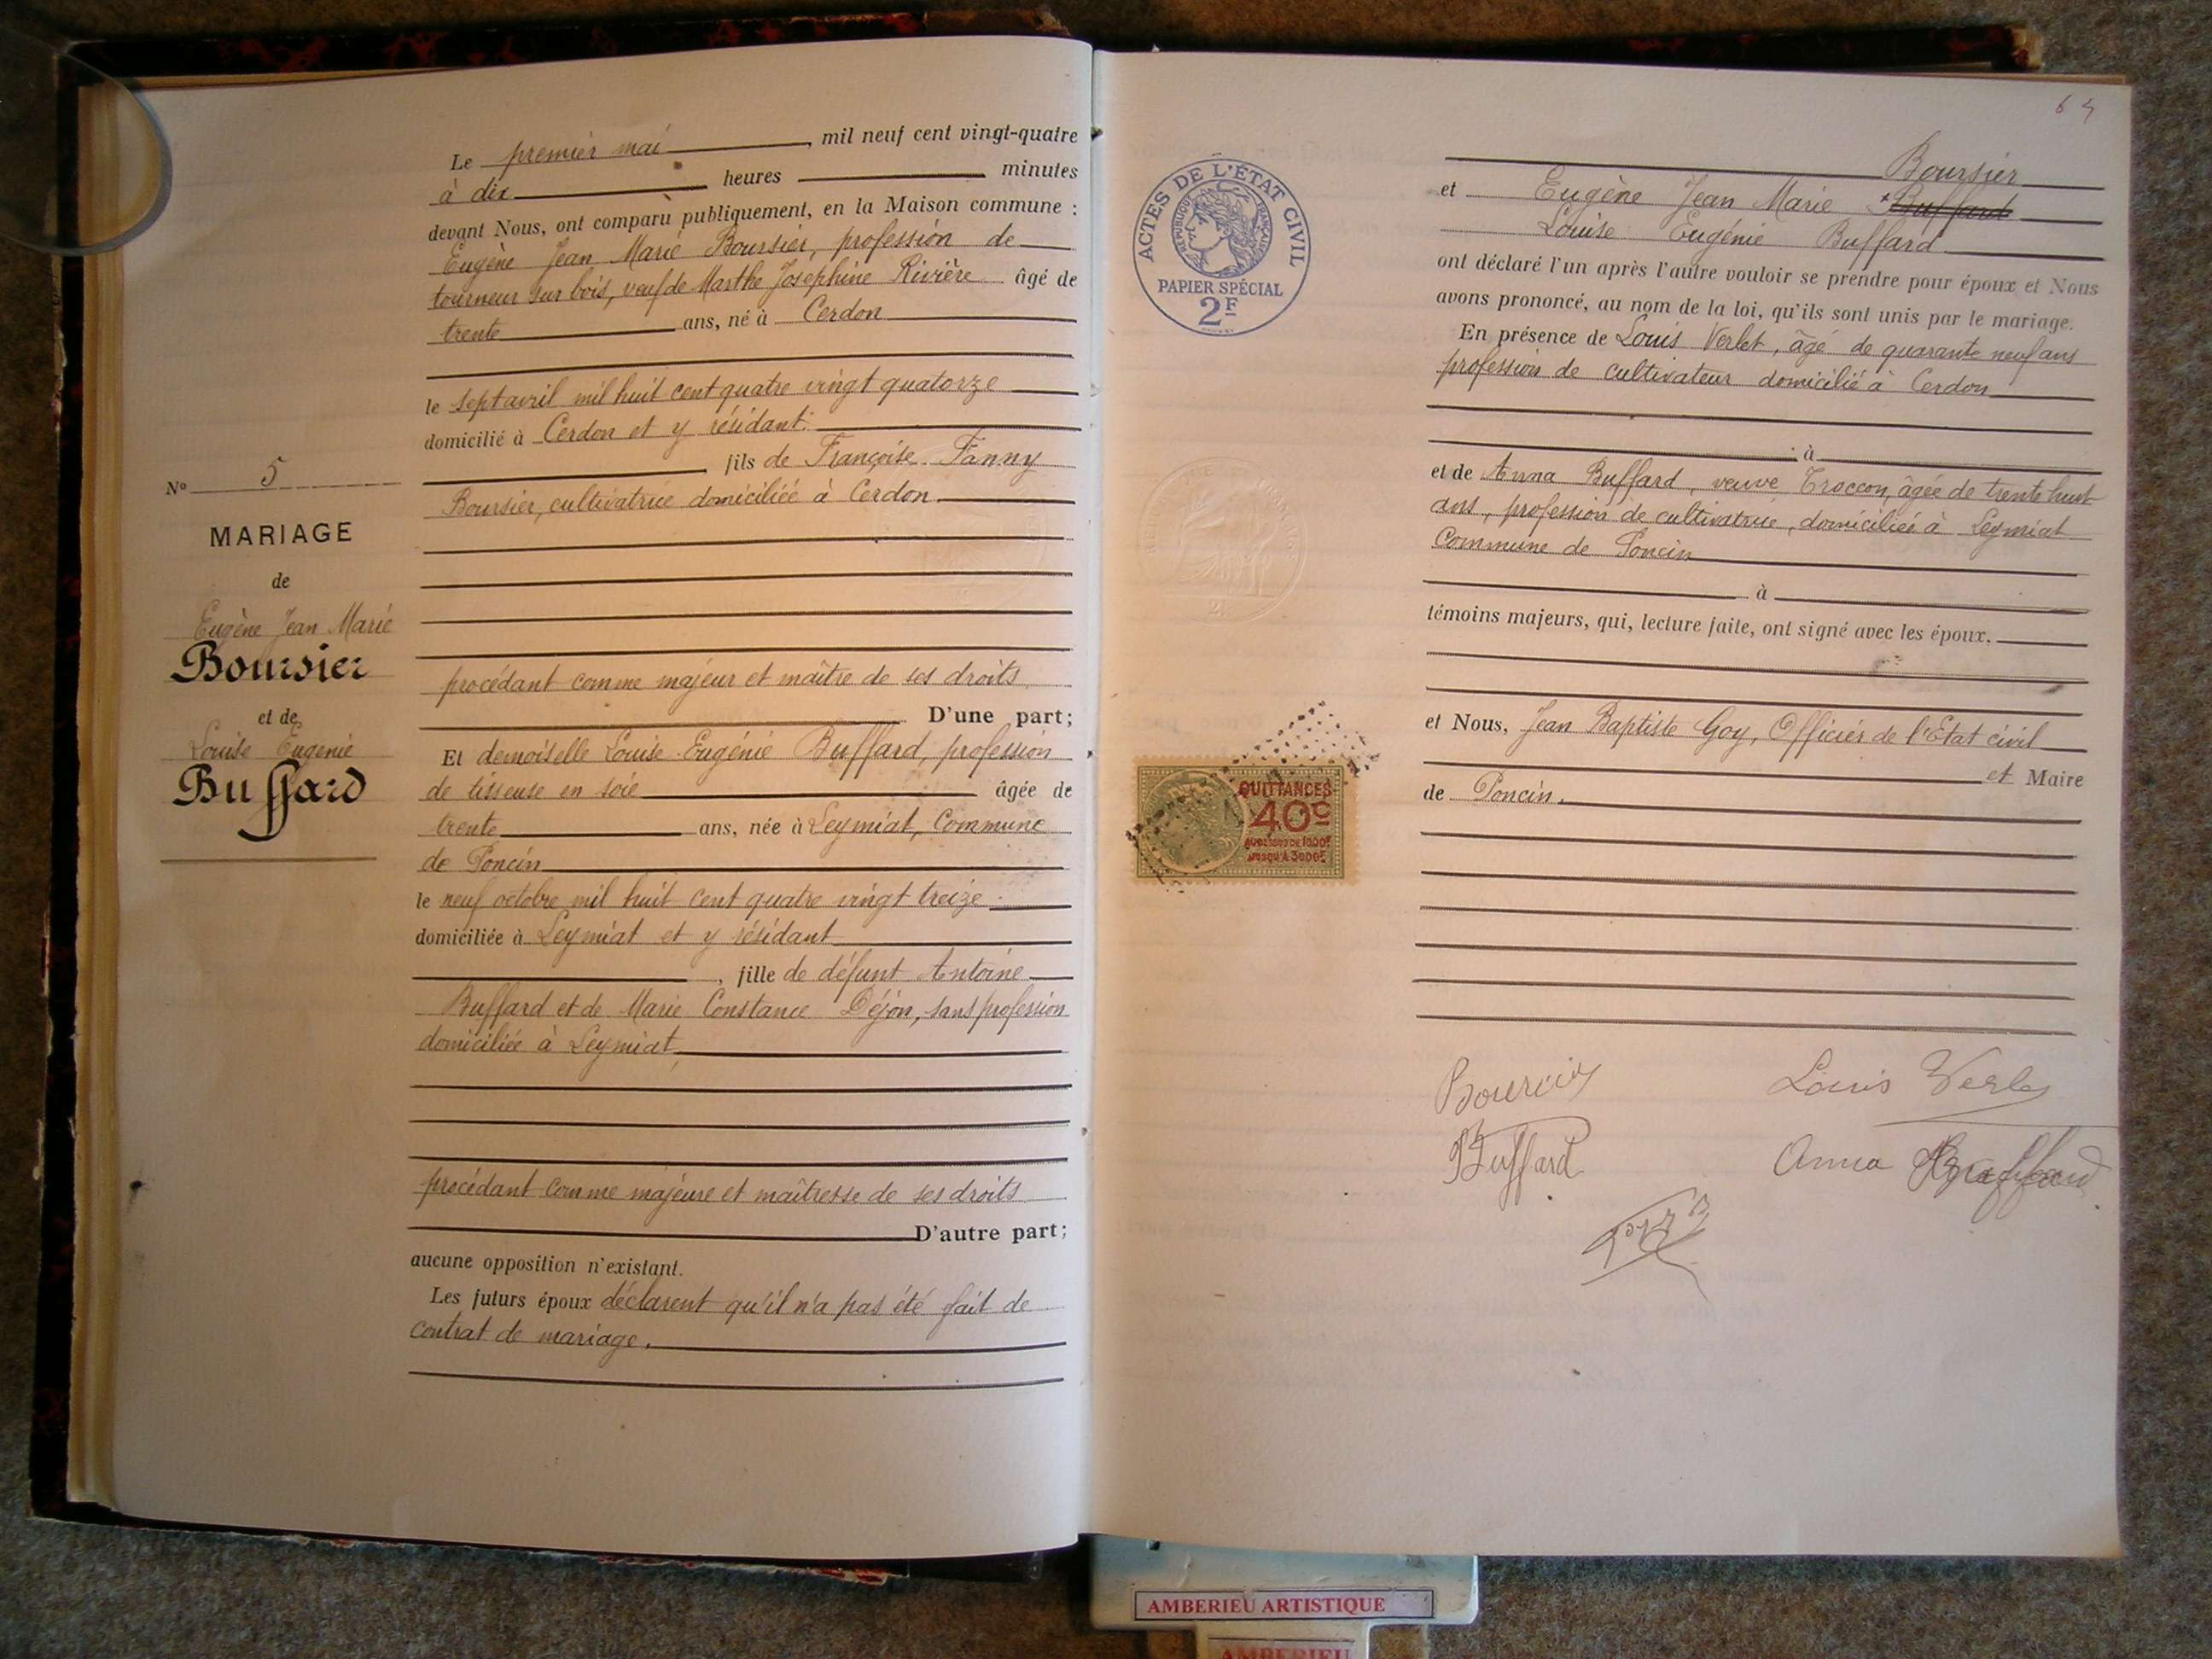 Le premier mai, mil neuf cent vingt-quatre
à dix heures minutes
devant Nous, ont comparu publiquement, en la Maison commune :
Eugène Jean Marie Boursier, profession de
tourneur sur bois, veuf de Marthe Josephine Rivière âgé de
trente ans, né à Cerdon
le sept avril mil huit cent quatre vingt quatorze
domicilié à Cerdon et y résidant
, fils de Françoise Fanny
Boursier, cultivatrice domiciliée à Cerdon
procédant comme majeur et maître de ses droits
D'une part;
Et demoiselle Louise Eugénie Buffard, profession
de tisseuse en soie âgée de
trente ans, née à Leymiat, Commune
de Poncin
le neuf octobre mil huit cent quatre vingt treize
domiciliée à Leymiat et y résidant
, fille de défunt Antoine
Buffard et de Marie Constance Déjon, sans profession
domiciliée à Leymiat,
procédant comme majeure et maîtresse de ses droits
D'autre part;
aucune opposition n'existant.
Les futurs époux déclarent qu'il n'a pas été fait de
contrat de mariage.
No 5
MARIAGE
de
Eugène Jean Marie
Boursier
et de
Louise Eugenie
Buffard
64
Boursier
et Eugène Jean Marie Buffard
Louise Eugénie Buffard
ont déclaré l'un après l'autre vouloir se prendre pour époux et Nous
avons prononcé, au nom de la loi, qu'ils sont unis par le mariage.
En présence de Louis Verlet, âgé de quarante neuf ans
profession de cultivateur domicilié à Cerdon
à
et de Anna Buffard, veuve Troccon, âgée de trente huit
ans, profession de cultivatrice, domiciliée à Leymiat
Commune de Poncin
à
témoins majeurs, qui, lecture faite, ont signé avec les époux.
et Nous, Jean Baptiste Goy, Officier de l'Etat civil
et Maire
de Poncin.
Louis Verlet
Buffard
Anna Buffard
ACTES DE L'ÉTAT CIVIL
RÉPUBLIQUE FRANÇAISE
PAPIER SPÉCIAL
2F
QUITTANCES
40c
AU DESSUS DE 1000F
JUSQU'A 3000F
AMBERIEU ARTISTIQUE
AMBERIEU